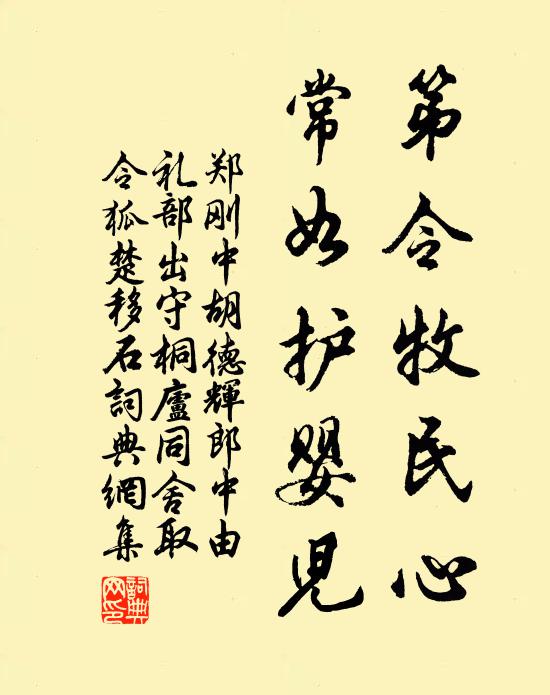 第令牧民心
常如护婴儿
郑刚中胡德輝郎中由
礼部出守桐廬同舍取
令狐楚移石詞典網集
詞典網印